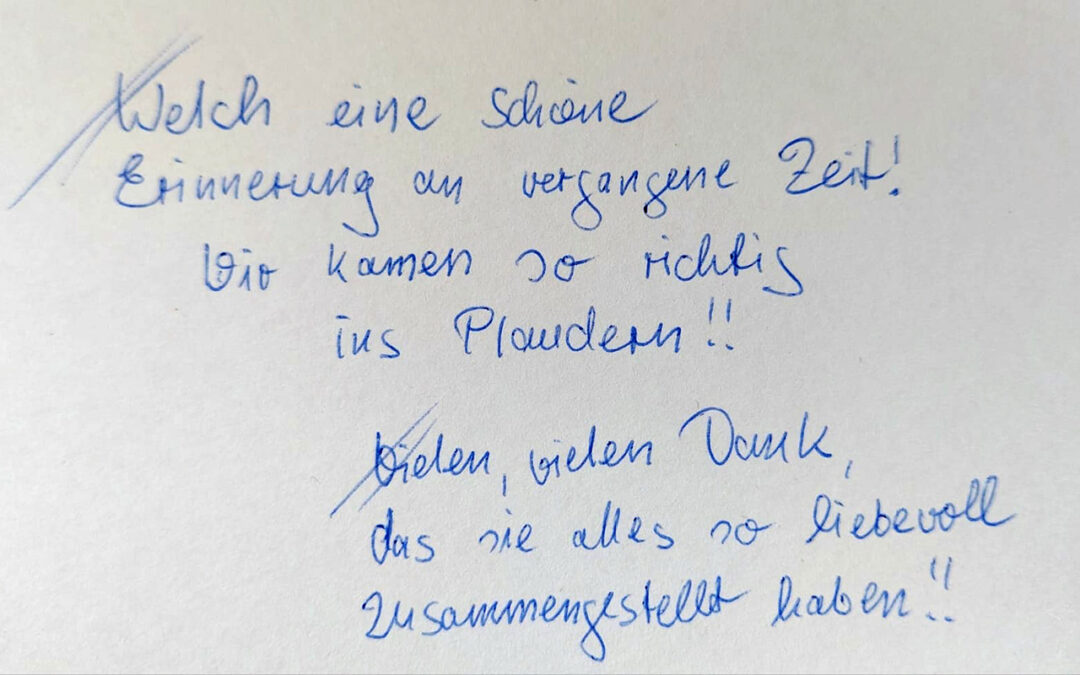 Welch eine schöne
Erinnerung an vergangene Zeit!
Wir kamen so richtig
ins Plaudern!!
Vielen, vielen Dank,
das sie alles so liebevoll
zusammengestellt haben!!